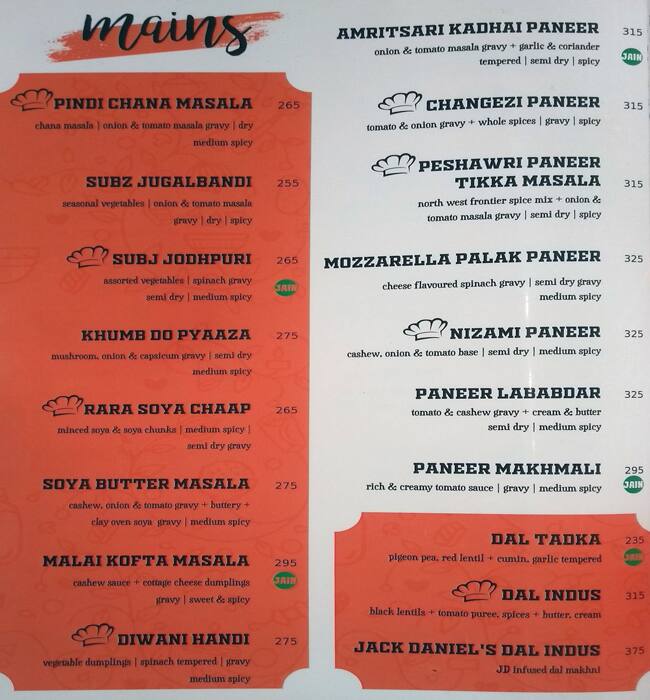 mains
PINDI CHANA MASALA 265
chana masala | onion & tomato masala gravy | dry
medium spicy
SUBZ JUGALBANDI 255
seasonal vegetables | onion & tomato masala
gravy | dry | spicy
SUBJ JODHPURI 265
assorted vegetables | spinach gravy
JAIN
semi dry | medium spicy
KHUMB DO PYAAZA 275
mushroom, onion & capsicum gravy | semi dry
medium spicy
RARA SOYA CHAAP 265
minced soya & soya chunks | medium spicy |
semi dry gravy
SOYA BUTTER MASALA 275
cashew, onion & tomato gravy + buttery +
clay oven soya gravy | medium spicy
MALAI KOFTA MASALA 295
cashew sauce + cottage cheese dumplings
JAIN
gravy | sweet & spicy
DIWANI HANDI 275
vegetable dumplings | spinach tempered | gravy
medium spicy
AMRITSARI KADHAI PANEER 315
onion & tomato masala gravy + garlic & coriander
JAIN
tempered | semi dry | spicy
CHANGEZI PANEER 315
tomato & onion gravy + whole spices | gravy | spicy
PESHAWRI PANEER
TIKKA MASALA 315
north west frontier spice mix + onion &
tomato masala gravy | semi dry | spicy
MOZZARELLA PALAK PANEER 325
cheese flavoured spinach gravy | semi dry gravy
medium spicy
NIZAMI PANEER 325
cashew, onion & tomato base | semi dry | medium spicy
PANEER LABABDAR 325
tomato & cashew gravy + cream & butter
semi dry | medium spicy
PANEER MAKHMALI 295
rich & creamy tomato sauce | gravy | medium spicy
JAIN
DAL TADKA 235
pigeon pea, red lentil + cumin, garlic tempered
JAIN
DAL INDUS 315
black lentils + tomato puree, spices + butter, cream
JACK DANIEL'S DAL INDUS 375
JD infused dal makhni